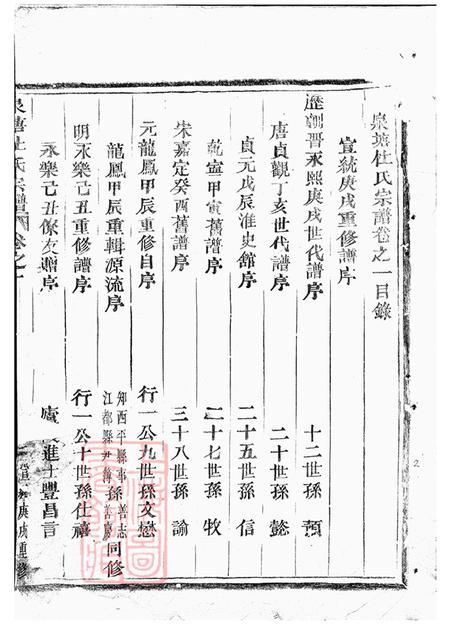 泉塘杜氏宗譜卷之一目錄
宣統庚戌重修譜序
歷朝晋永熙庚戌世代譜序 十二世孫 預
唐貞觀丁亥世代譜序 二十世孫 懿
貞元戊辰淮史館序 二十五世孫 信
乾寧甲寅舊譜序 二十七世孫 牧
宋嘉定癸酉舊譜序 三十八世孫 諭
元龍鳳甲辰重修自序 行一公九世孫文懋
龍鳳甲辰重輯源流序 知西平縣事孫善志 江都縣尹簿孫善慶 同修
明永樂己丑重修譜序 行一公十世孫仕禧
永樂己丑傢友贈序 進士豐昌言
泉塘杜氏宗譜 卷之一
庚戌重修